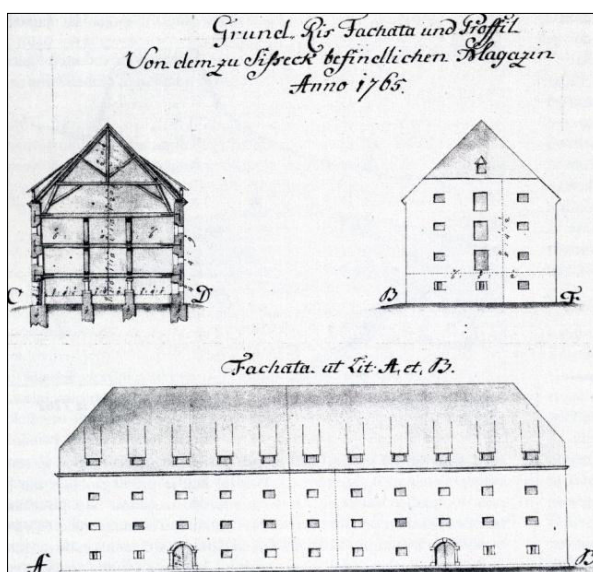 Grund-Ris Fachata und Proffil
Von dem zu Sisseck befindlichen Magazin
Anno 1765.
C D
B F
Fachata ut Lit: A, et, B.
A B